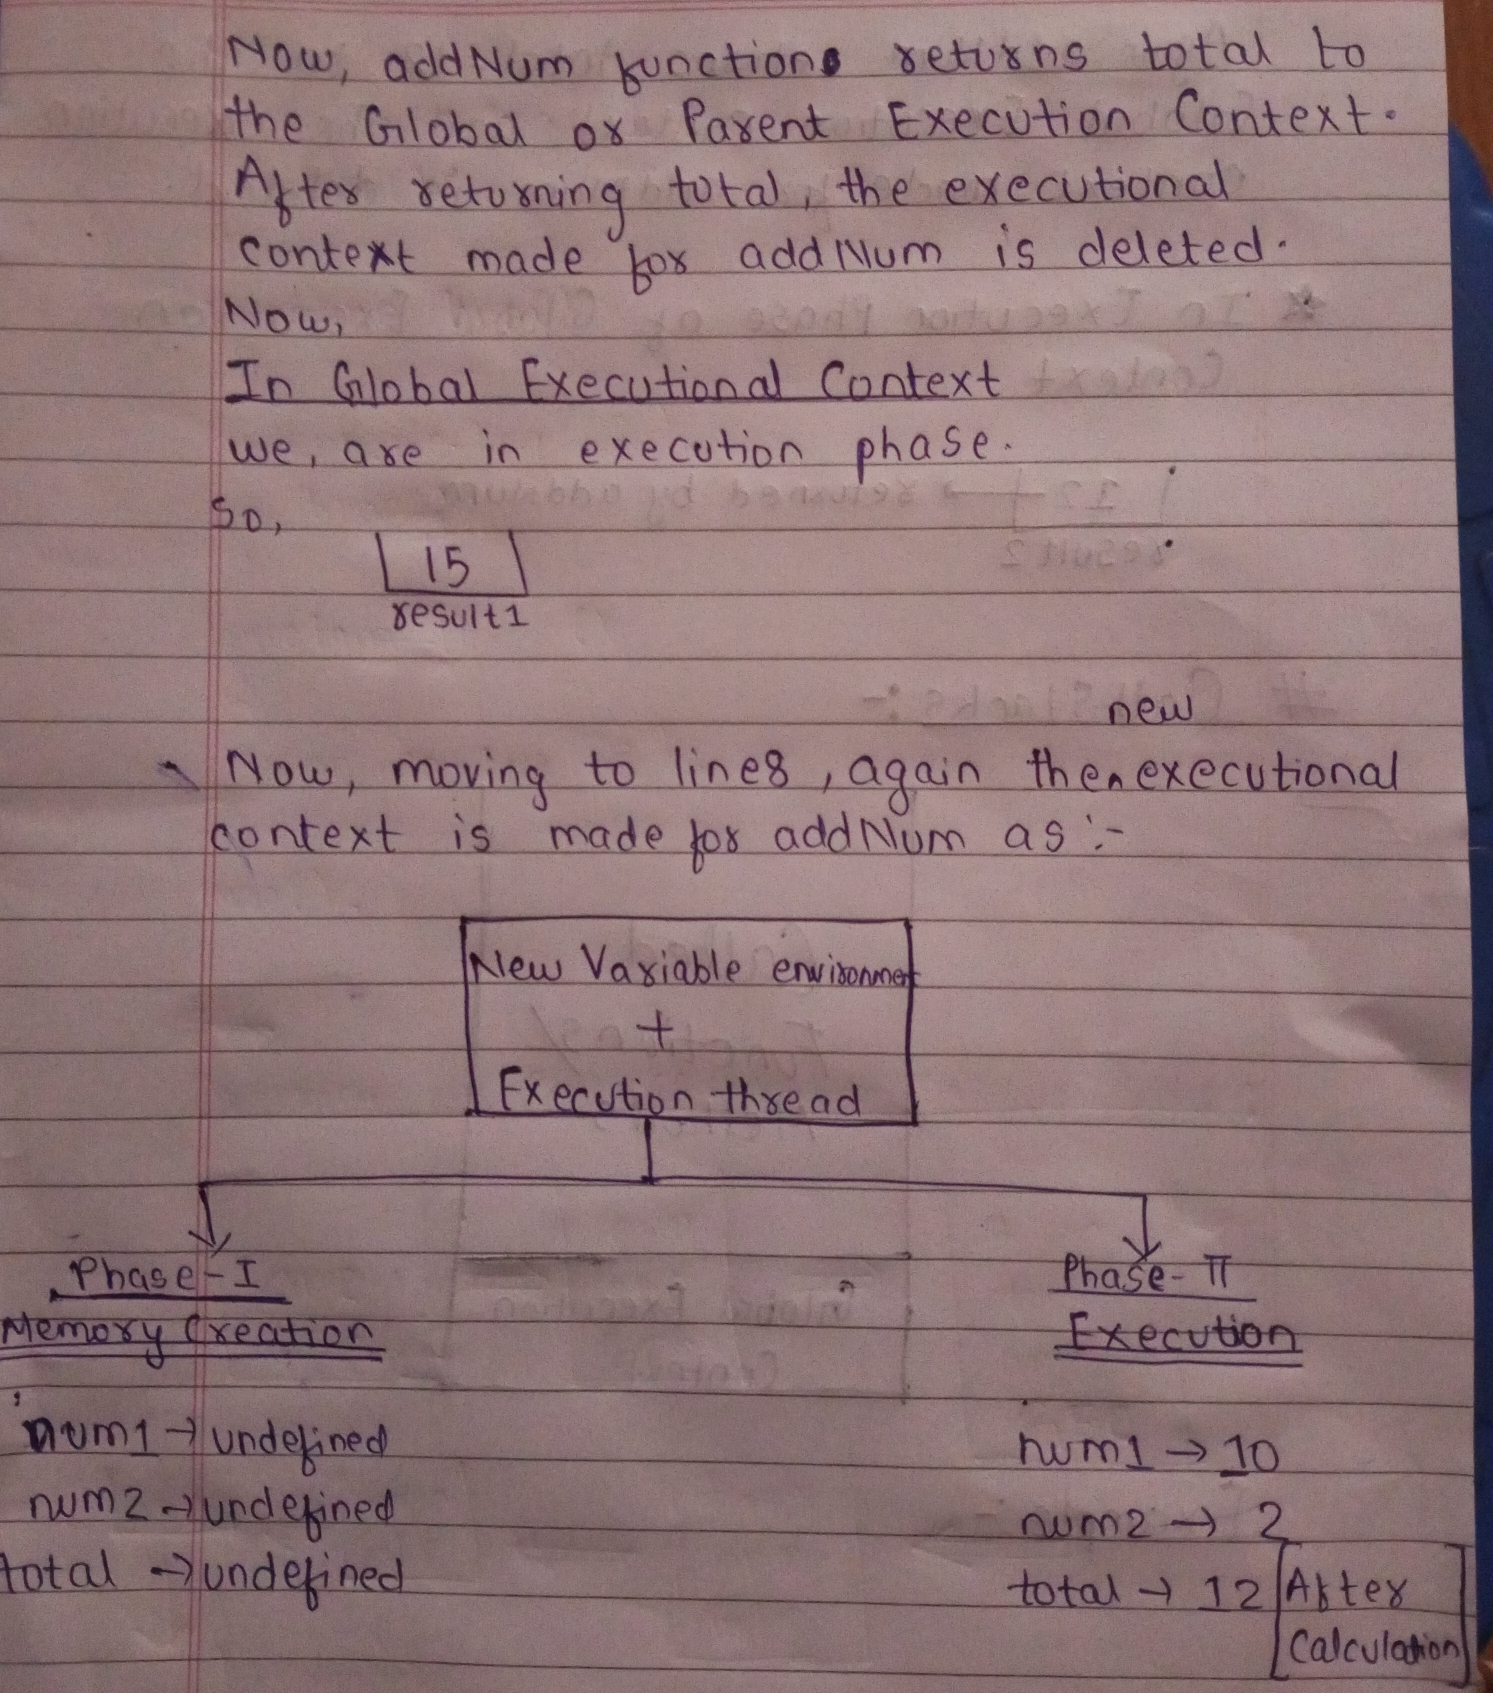 Now, addNum functions returns total to
the Global or Parent Execution Context.
After returning total, the executional
context made for addNum is deleted.
Now,
In Global Executional Context
we, are in execution phase.
So,
15
result1
new
Now, moving to line8, again then executional
context is made for addNum as :-
New Variable environment
+
Execution thread
Phase-I
Memory Creation
num1 → undefined
num2 → undefined
total → undefined
Phase-II
Execution
num1 → 10
num2 → 2
total → 12 [After
Calculation]